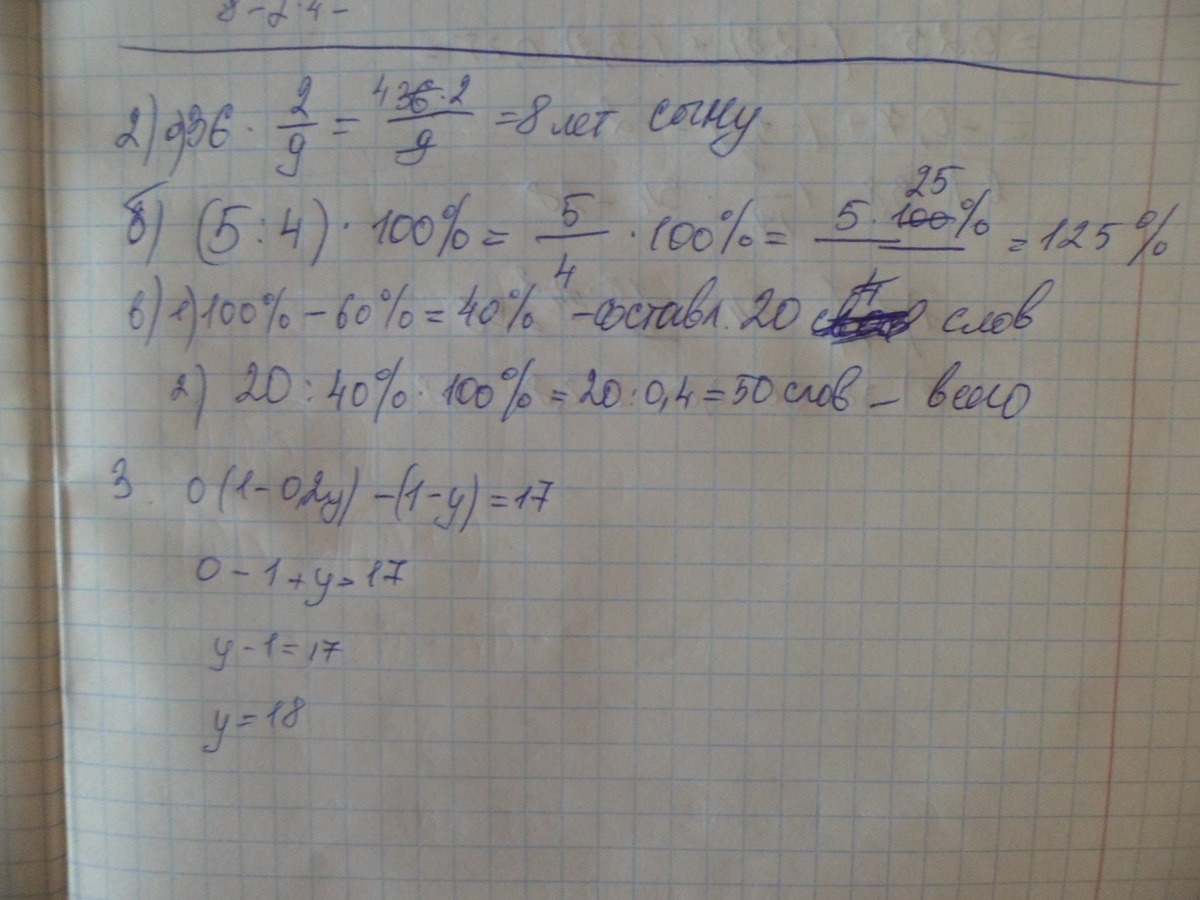 8-2·4-
2) а) 36 · 2/9 = 4 36·2/9 = 8 лет сыну
б) (5:4) · 100% = 5/4 · 100% = 5·100% 25/4 = 125%
в) 1) 100% - 60% = 40% - составл. 20 слов
2) 20 : 40% · 100% = 20:0,4 = 50 слов - всего
3. 0(1-0,2y) - (1-y) = 17
0 - 1 + y = 17
y - 1 = 17
y = 18